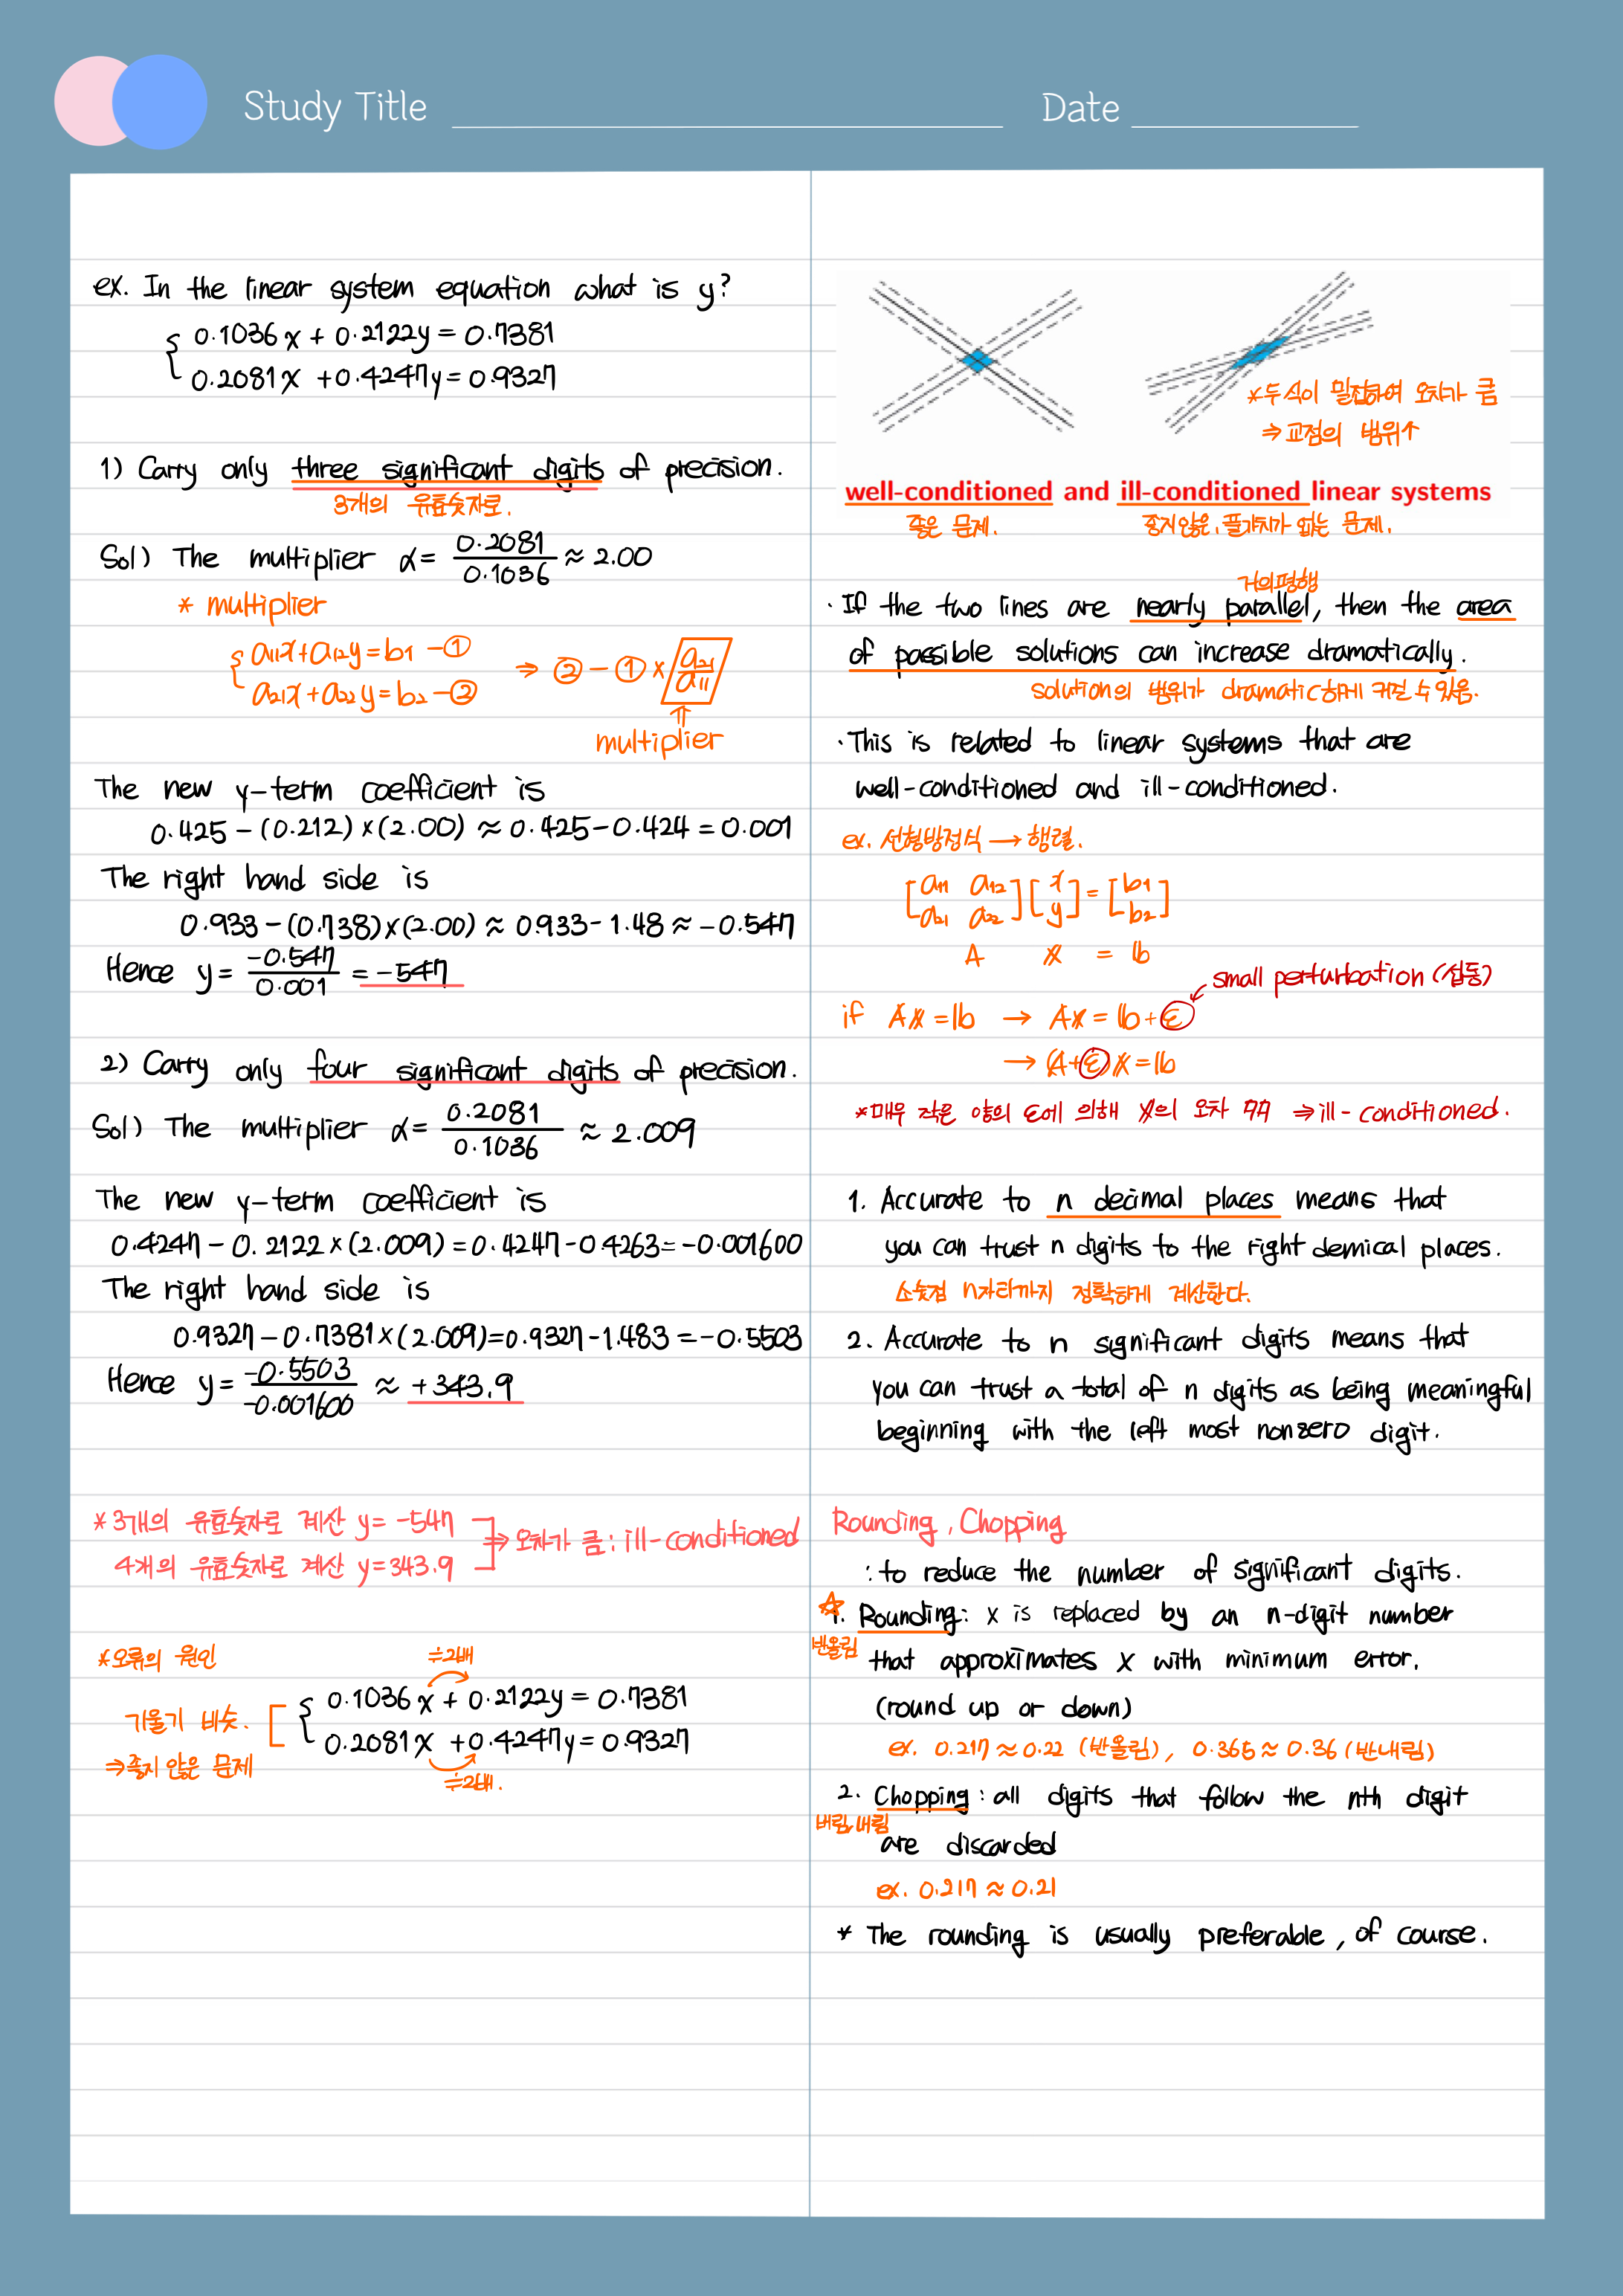 Study Title
Date
ex. In the linear system equation what is y?
0.1036x + 0.2122y = 0.7381
0.2081x + 0.4247y = 0.9327
1) Carry only three significant digits of precision.
3개의 유효숫자로.
Sol) The multiplier α = 0.2081/0.1036 ≈ 2.00
* multiplier
a11x+a12y=b1 -①
a21x+a22y=b2 -②
⇒ ② - ① × a21/a11
⇑
multiplier
The new y-term coefficient is
0.425 - (0.212)×(2.00) ≈ 0.425-0.424 = 0.001
The right hand side is
0.933 - (0.738)×(2.00) ≈ 0.933-1.48 ≈ -0.547
Hence y = -0.547/0.001 = -547
2) Carry only four significant digits of precision.
Sol) The multiplier α = 0.2081/0.1036 ≈ 2.009
The new y-term coefficient is
0.4247 - 0.2122×(2.009) = 0.4247-0.4263 = -0.001600
The right hand side is
0.9327 - 0.7381×(2.009) = 0.9327-1.483 = -0.5503
Hence y = -0.5503/-0.001600 ≈ +343.9
*3개의 유효숫자로 계산 y = -547
4개의 유효숫자로 계산 y = 343.9
⇒ 오차가 큼 : ill-conditioned
*오류의 원인
≒2배
기울기 비슷.
⇒좋지 않은 문제
0.1036x + 0.2122y = 0.7381
0.2081x + 0.4247y = 0.9327
≒2배.
*두 식이 밀접하여 오차가 큼
⇒ 교점의 범위↑
well-conditioned and ill-conditioned linear systems
좋은 문제.
좋지않은, 풀가치가 없는 문제.
거의평행
· If the two lines are nearly parallel, then the area
of possible solutions can increase dramatically.
solution의 범위가 dramatic하게 커질 수 있음.
· This is related to linear systems that are
well-conditioned and ill-conditioned.
ex. 선형방정식 → 행렬.
[a11 a12; a21 a22] [x; y] = [b1; b2]
A x = b
small perturbation (섭동)
if Ax = b → Ax = b+ε
→ (A+ε)x = b
*매우 작은 양의 ε에 의해 x의 오차 ↑↑ ⇒ ill-conditioned.
1. Accurate to n decimal places means that
you can trust n digits to the right demical places.
소숫점 n자리까지 정확하게 계산한다.
2. Accurate to n significant digits means that
you can trust a total of n digits as being meaningful
beginning with the left most nonzero digit.
Rounding, Chopping
: to reduce the number of significant digits.
☆1. Rounding : x is replaced by an n-digit number
반올림
that approximates x with minimum error.
(round up or down)
ex. 0.217 ≈ 0.22 (반올림), 0.365 ≈ 0.36 (반내림)
2. Chopping : all digits that follow the nth digit
버림, 내림
are discarded
ex. 0.217 ≈ 0.21
* The rounding is usually preferable, of course.